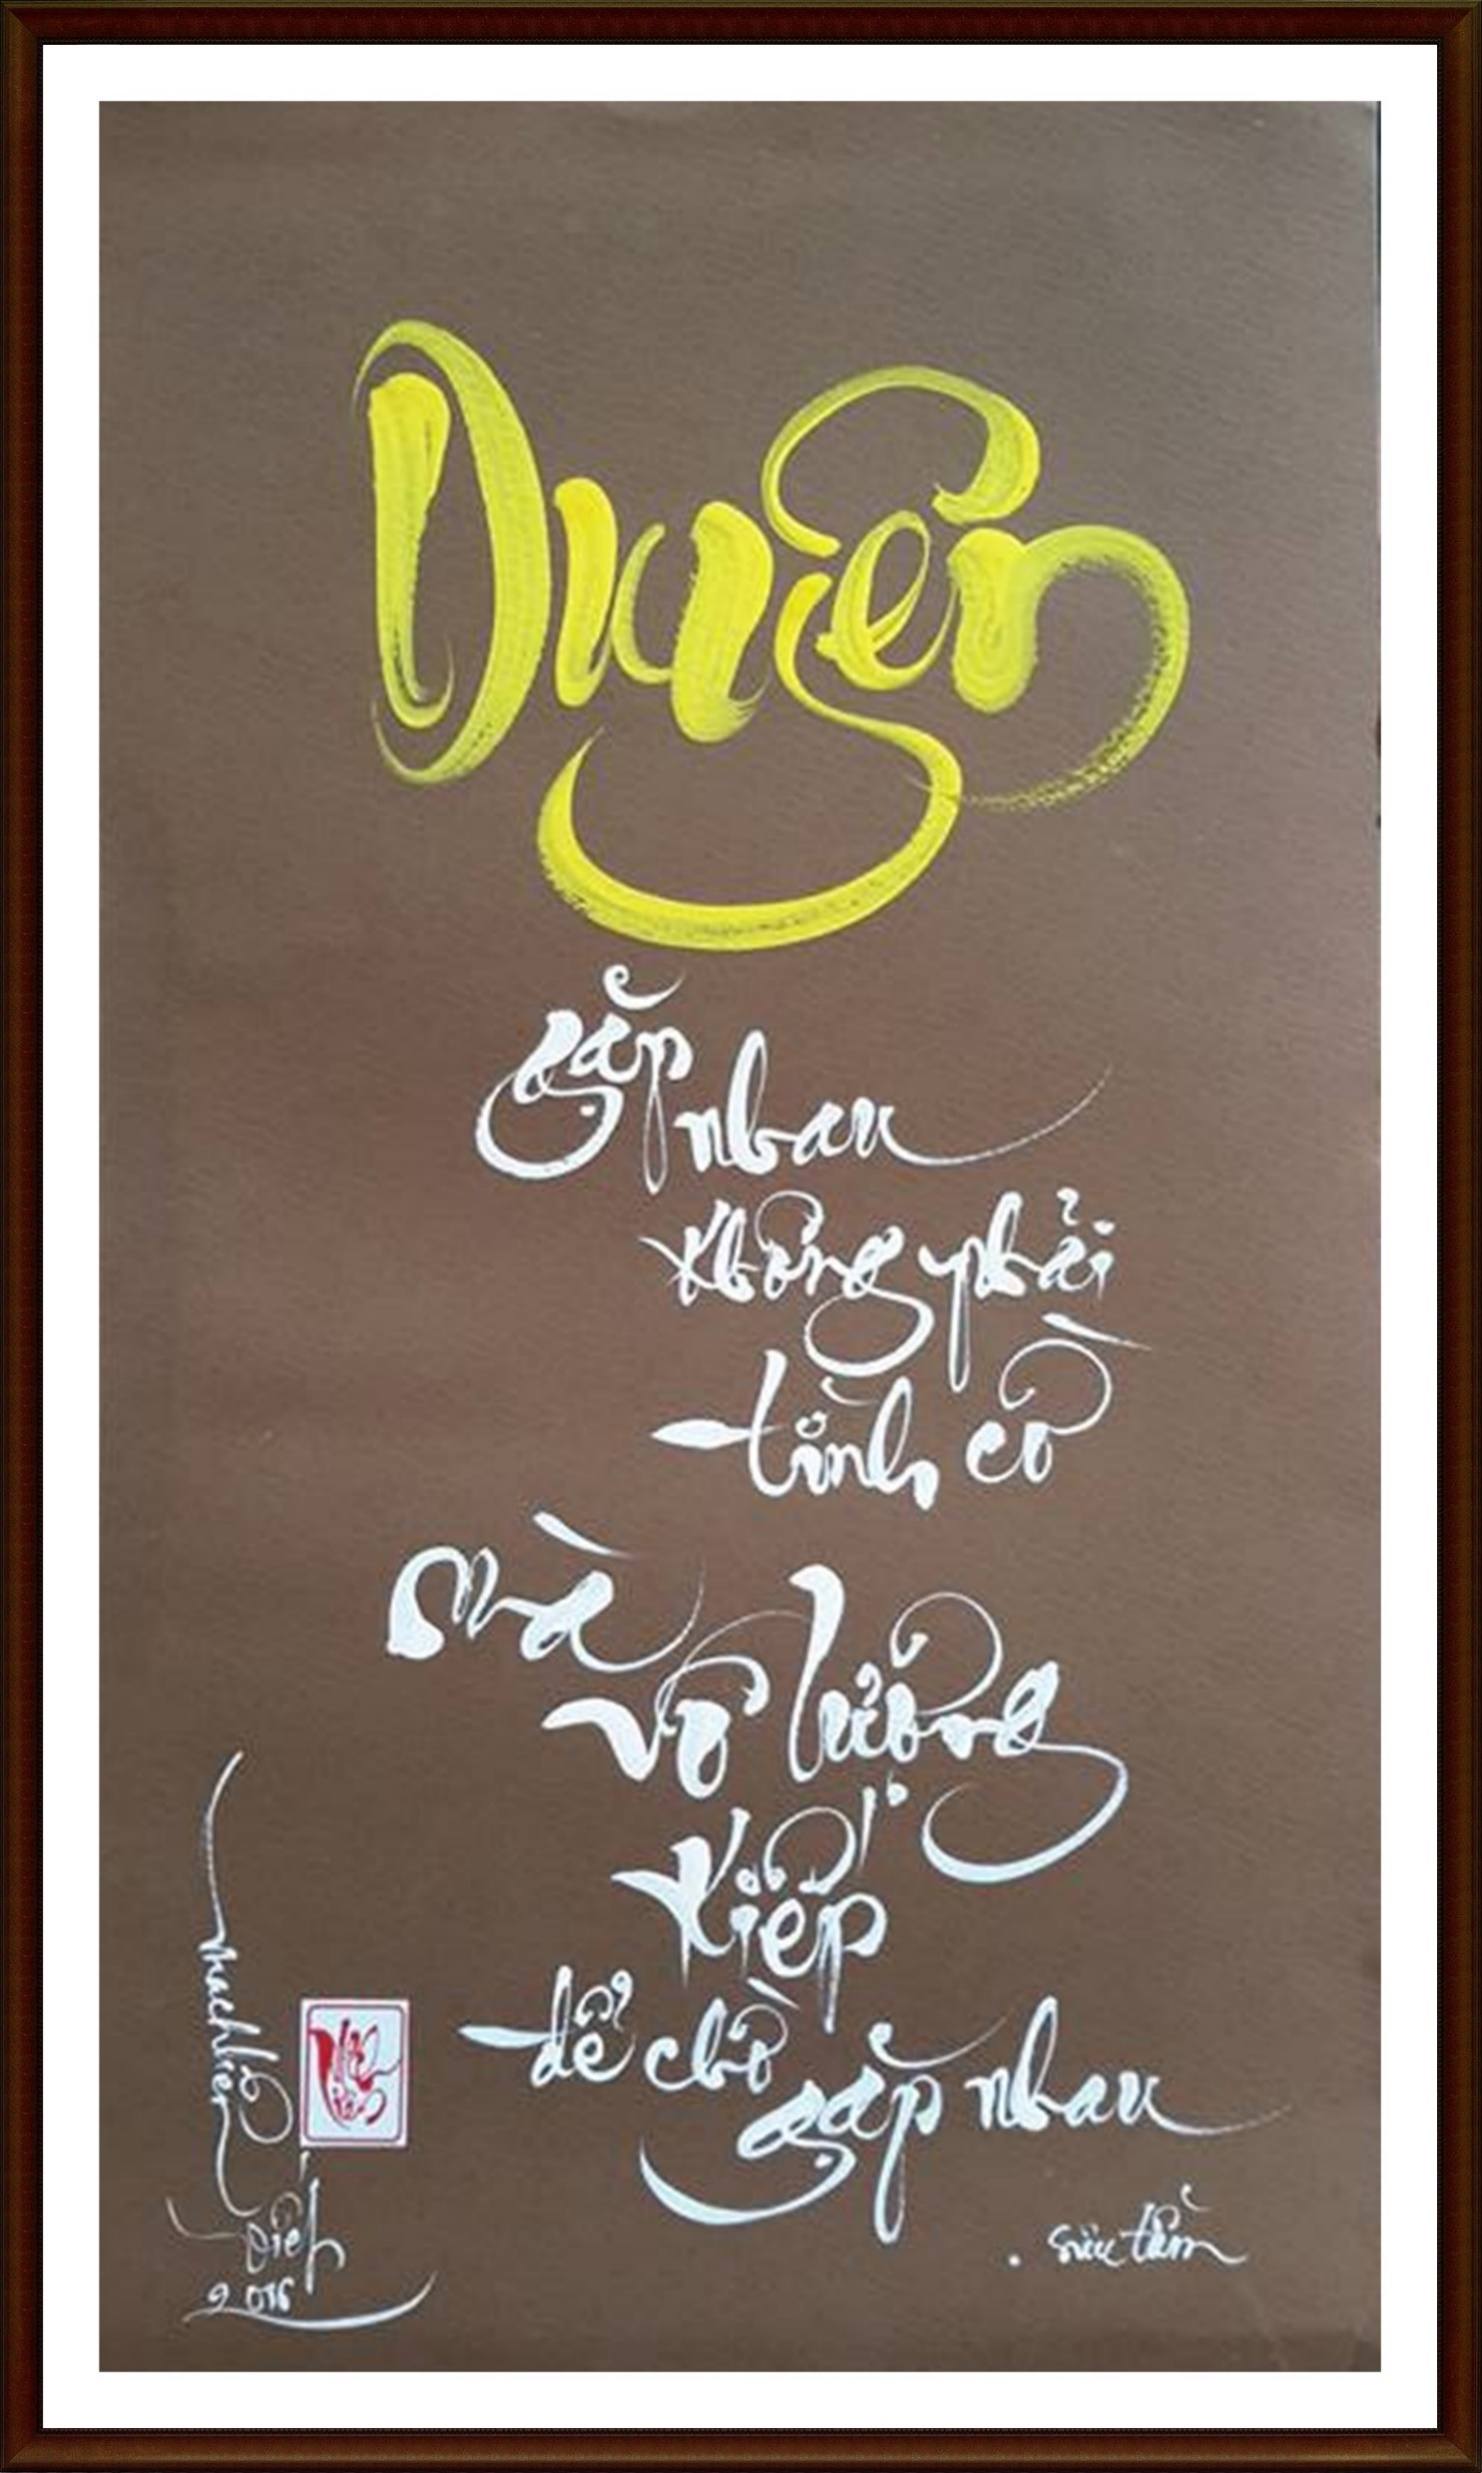 Duyên
gặp
nhau
không phải
tình cờ
mà
vô lượng
kiếp
để chờ
gặp nhau
. sưu tầm
2016